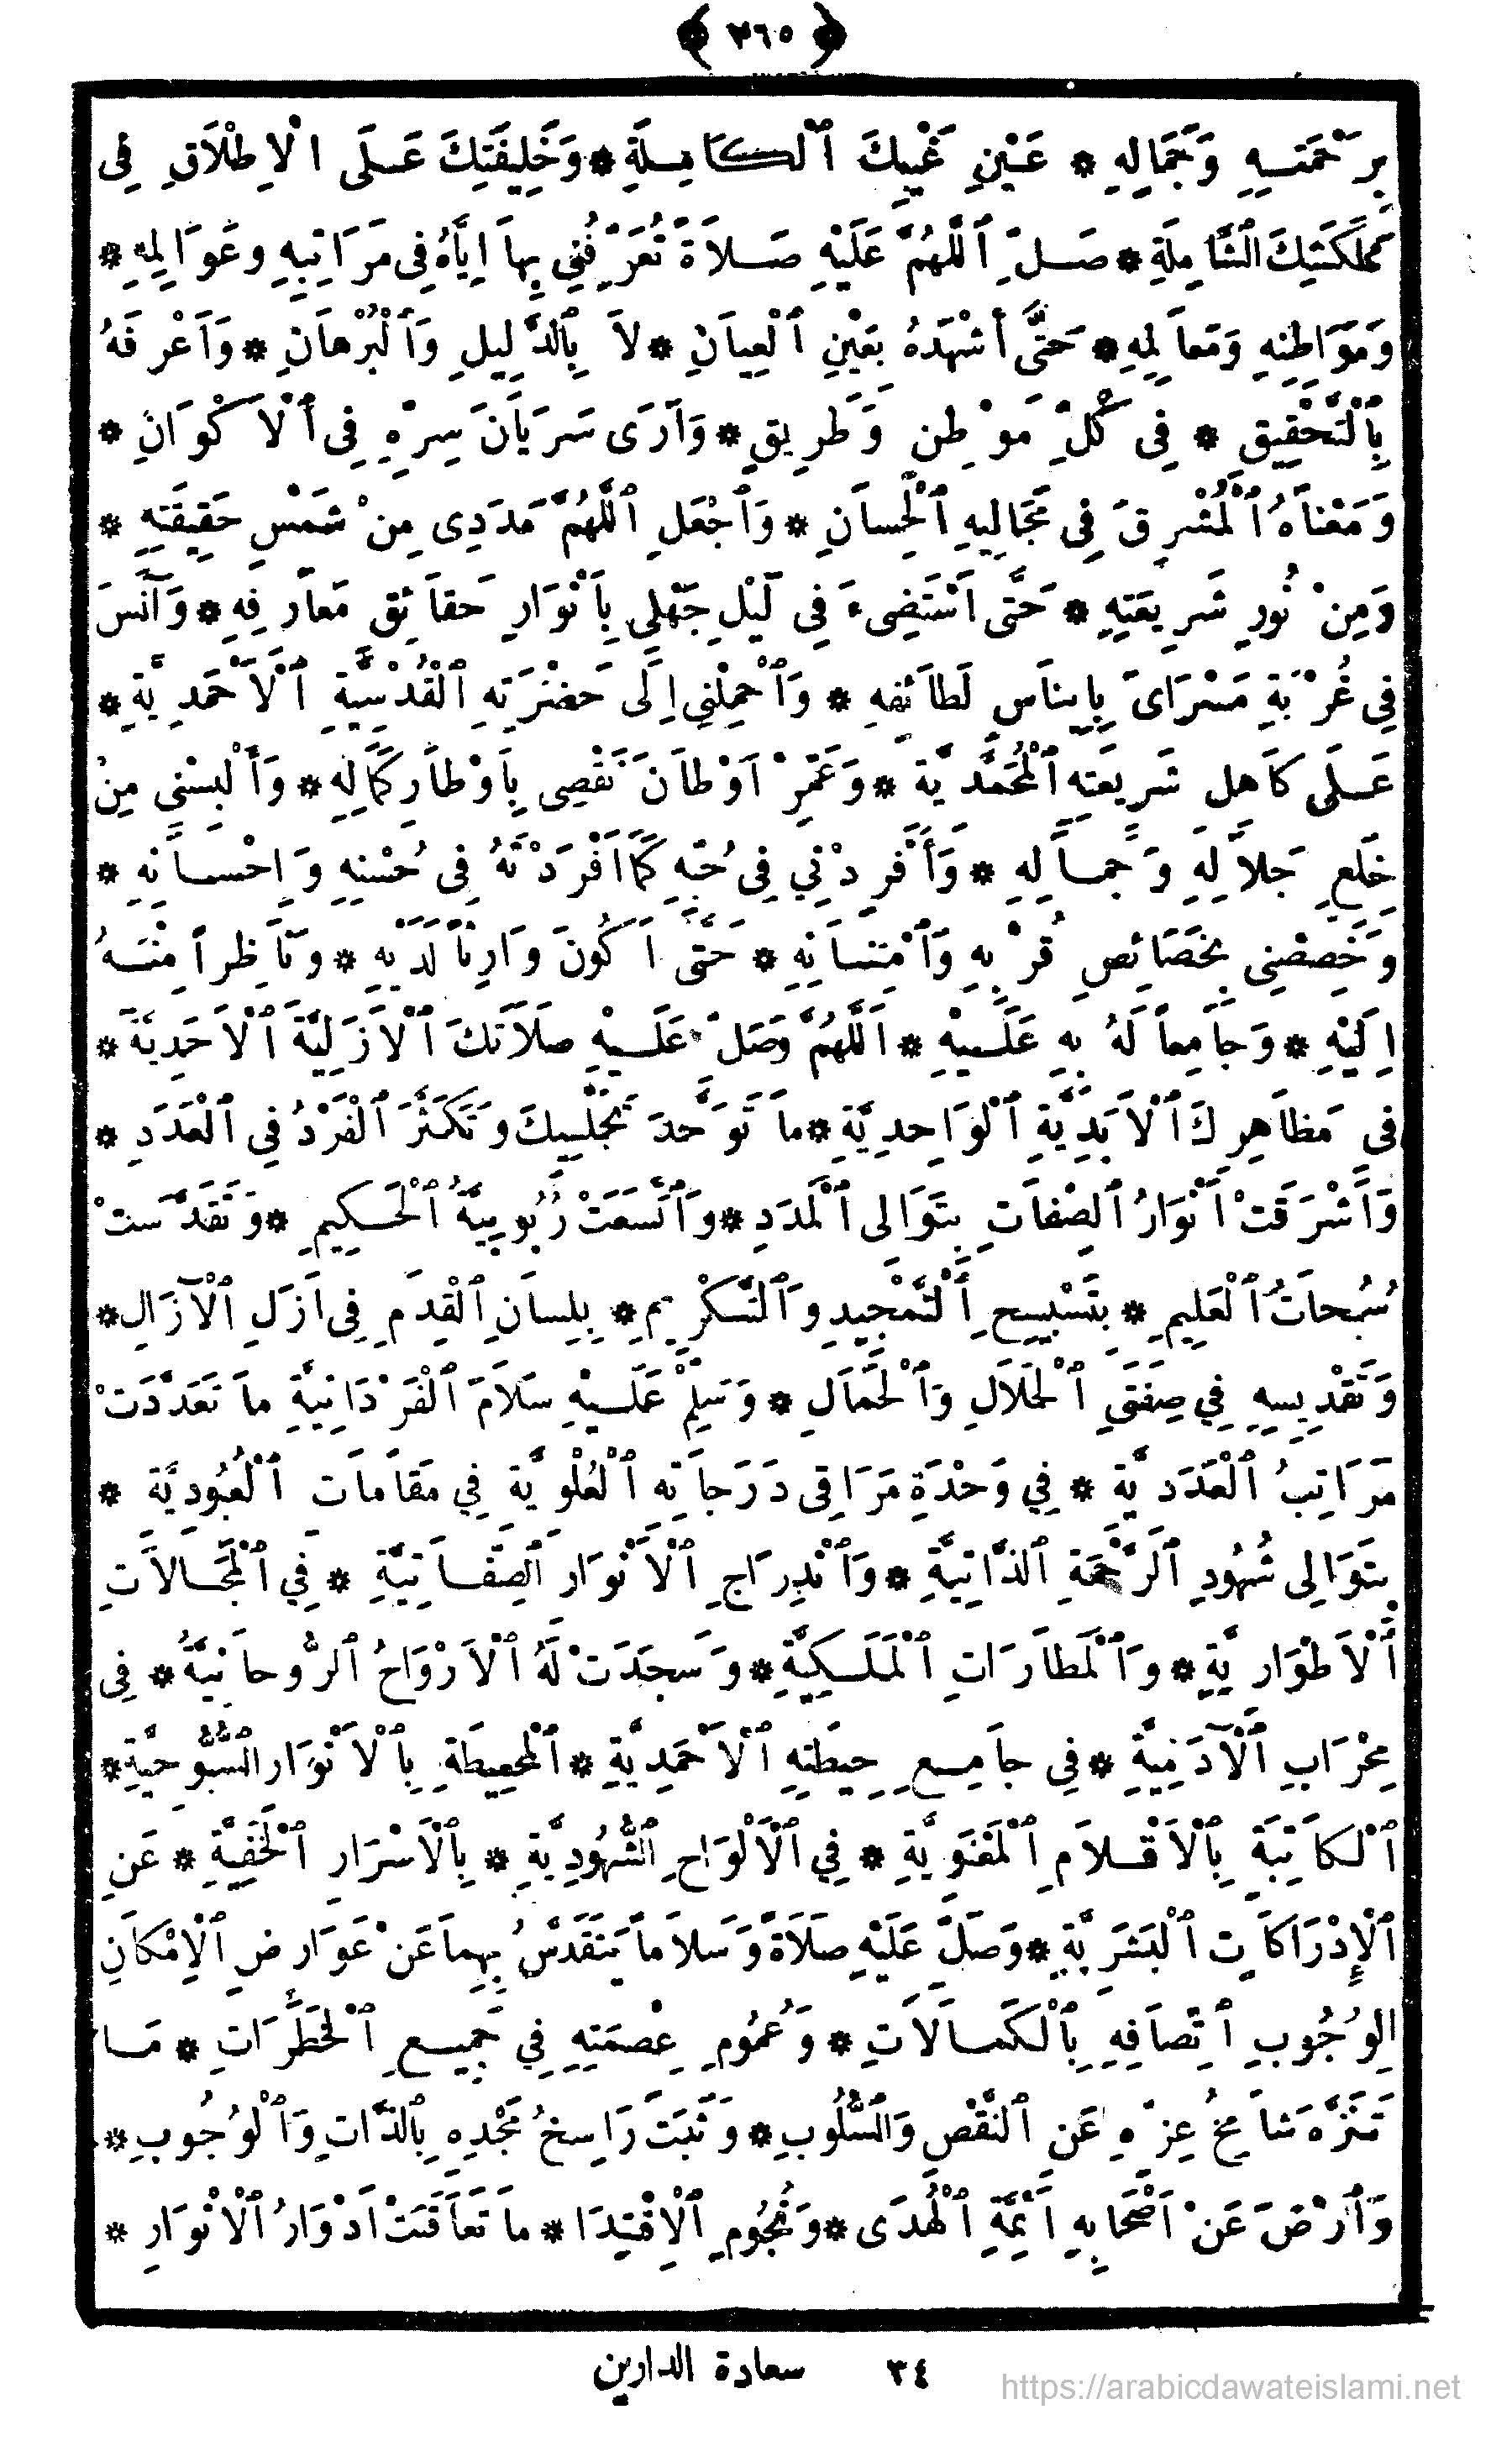 ﴿ ٢٦٥ ﴾
بِرَحْمَتِهِ وَجَمَالِهِ * عَيْنِ غَيْبِكَ ٱلْكَامِلَةِ * وَخَلِيفَتِكَ عَلَى الْاِطْلَاقِ فِى
مَمْلَكَتِكَ الشَّامِلَةِ * صَلِّ ٱللّٰهُمَّ عَلَيْهِ صَلَاةً تُعَرِّفُنِى بِهَا اِيَّاهُ فِى مَرَاتِبِهِ وعَوَالِمِهِ *
وَمَوَاطِنِهِ وَمَعَالِمِهِ * حَتَّى أَشْهَدَهُ بِعَيْنِ ٱلْعِيَانِ * لَا بِٱلدَّلِيلِ وَٱلْبُرْهَانِ * وَاَعْرِفَهُ
بِٱلتَّحْقِيقِ * فِى كُلِّ مَوْطِنٍ وَطَرِيقٍ * وَاَرَى سَرَيَانَ سِرِّهِ فِى ٱلْاَكْوَانِ *
وَمَعْنَاهُ ٱلْمُشْرِقَ فِى مَجَالِيهِ ٱلْحِسَانِ * وَٱجْعَلِ ٱللّٰهُمَّ مَدَدِى مِنْ شَمْسِ حَقِيقَتِهِ *
وَمِنْ نُورِ شَرِيعَتِهِ * حَتَّى اَسْتَضِىءَ فِى لَيْلِ جَهْلِى بِاَنْوَارِ حَقَائِقِ مَعَارِفِهِ * وَآنَسَ
فِى غُرْبَةِ مَسْرَاىَ بِاِينَاسِ لَطَائِفِهِ * وَٱحْمِلْنِى اِلَى حَضْرَتِهِ ٱلْقُدْسِيَّةِ ٱلْاَحْمَدِيَّةِ *
عَلَى كَاهِلِ شَرِيعَتِهِ ٱلْمُحَمَّدِيَّةِ * وَعَمِّرْ اَوْطَانَ نَقْصِى بِاَوْطَارِ كَمَالِهِ * وَأَلْبِسْنِى مِنْ
خِلَعِ جَلَالِهِ وَجَمَالِهِ * وَأَفْرِدْنِي فِى حُبِّهِ كَمَا اَفْرَدْتَهُ فِى حُسْنِهِ وَاِحْسَانِهِ *
وَخَصِّصْنِى بِخَصَائِصِ قُرْبِهِ وَٱمْتِنَانِهِ * حَتَّى اَكُونَ وَارِثًا لَدَيْهِ * وَنَاظِراً مِنْهُ
اِلَيْهِ * وَجَامِعاً لَهُ بِهِ عَلَيْهِ * اَللّٰهُمَّ وَصَلِّ عَلَيْهِ صَلَاتَكَ ٱلْاَزَلِيَّةَ ٱلْاَحَدِيَّةَ *
فِى مَظَاهِرِكَ ٱلْاَبَدِيَّةِ ٱلْوَاحِدِيَّةِ * مَا تَوَحَّدَ تَجَلِّيكَ وَتَكَثَّرَ ٱلْفَرْدُ فِي ٱلْعَدَدِ *
وَأَشْرَقَتْ أَنْوَارُ ٱلصِّفَاتِ بِتَوَالِى ٱلْمَدَدِ * وَٱتَّسَعَتْ رُبُوبِيَّةُ ٱلْحَكِيمِ * وَتَقَدَّسَتْ
سُبُحَاتُ ٱلْعَلِيمِ * بِتَسْبِيحِ ٱلتَّمْجِيدِ وَٱلتَّكْرِيمِ * بِلِسَانِ ٱلْقِدَمِ فِى اَزَلِ ٱلْآزَالِ *
وَتَقْدِيسِهِ فِي صِفَتَىِ ٱلْجَلَالِ وَٱلْجَمَالِ * وَسَلِّمْ عَلَيْهِ سَلَامَ ٱلْفَرْدَانِيَّةِ مَا تَعَدَّدَتْ
مَرَاتِبُ ٱلْعَدَدِيَّةِ * فِي وَحْدَةِ مَرَاقِى دَرَجَاتِهِ ٱلْعُلْوِيَّةِ فِي مَقَامَاتِ ٱلْعُبُودِيَّةِ *
بِتَوَالِى شُهُودِ ٱلرَّحْمَةِ ٱلذَّاتِيَّةِ * وَٱنْدِرَاجِ ٱلْاَنْوَارِ ٱلصِّفَاتِيَّةِ * فِي ٱلْمَجَالَاتِ
ٱلْاَطْوَارِيَّةِ * وَٱلْمَطَارَاتِ ٱلْمَلَكِيَّةِ * وَسَجَدَتْ لَهُ ٱلْاَرْوَاحُ ٱلرُّوحَانِيَّةُ * فِى
مِحْرَابِ ٱلْآدَمِيَّةِ * فِى جَامِعِ حِيطَتِهِ ٱلْاَحْمَدِيَّةِ * ٱلْمُحِيطَةِ بِٱلْاَنْوَارِ السُّبُّوحِيَّةِ *
ٱلْكَاتِبَةِ بِٱلْاَقْلَامِ ٱلْمَعْنَوِيَّةِ * فِي ٱلْاَلْوَاحِ ٱلشُّهُودِيَّةِ * بِٱلْاَسْرَارِ ٱلْخَفِيَّةِ * عَنِ
ٱلْإِدْرَاكَاتِ ٱلْبَشَرِيَّةِ * وَصَلِّ عَلَيْهِ صَلَاةً وَسَلَاماً يَتَقَدَّسُ بِهِمَا عَنْ عَوَارِضِ ٱلْاِمْكَانِ
الِوُجُوبِ ٱتِّصَافِهِ بِٱلْكَمَالَاتِ * وَعُمُومِ عِصْمَتِهِ فِي جَمِيعِ ٱلْخَطَرَاتِ * مَا
تَنَزَّهَ شَامِخُ عِزِّهِ عَنِ ٱلنَّقْصِ وَالسُّلُوبِ * وَثَبَتَ رَاسِخُ مَجْدِهِ بِٱلذَّاتِ وَٱلْوُجُوبِ *
وَٱرْضَ عَنْ اَصْحَابِهِ اَئِمَّةِ ٱلْهُدَى * وَنُجُومِ ٱلْاِقْتِدَا * مَا تَعَاقَبَتْ اَدْوَارُ ٱلْاَنْوَارِ *
٣٤ سعادة الدارين
https://arabicdawateislami.net